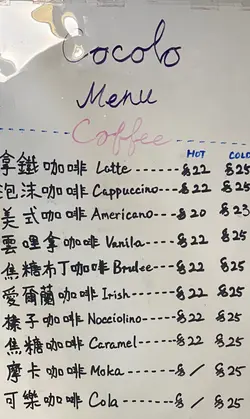 Cocolo
Menu
Coffee
HOT COLD
拿鐵咖啡 Latte ------ $22 $25
泡沫咖啡 Cappuccino --- $22 $25
美式咖啡 Americano --- $20 $23
雲哩拿咖啡 Vanila ---- $22 $25
焦糖布丁咖啡 Brulee --- $22 $25
愛爾蘭咖啡 Irish ----- $22 $25
榛子咖啡 Nocciolino ---- $22 $25
焦糖咖啡 Caramel ----- $22 $25
摩卡咖啡 Moka ------ $ / $25
可樂咖啡 Cola ------ $ / $25